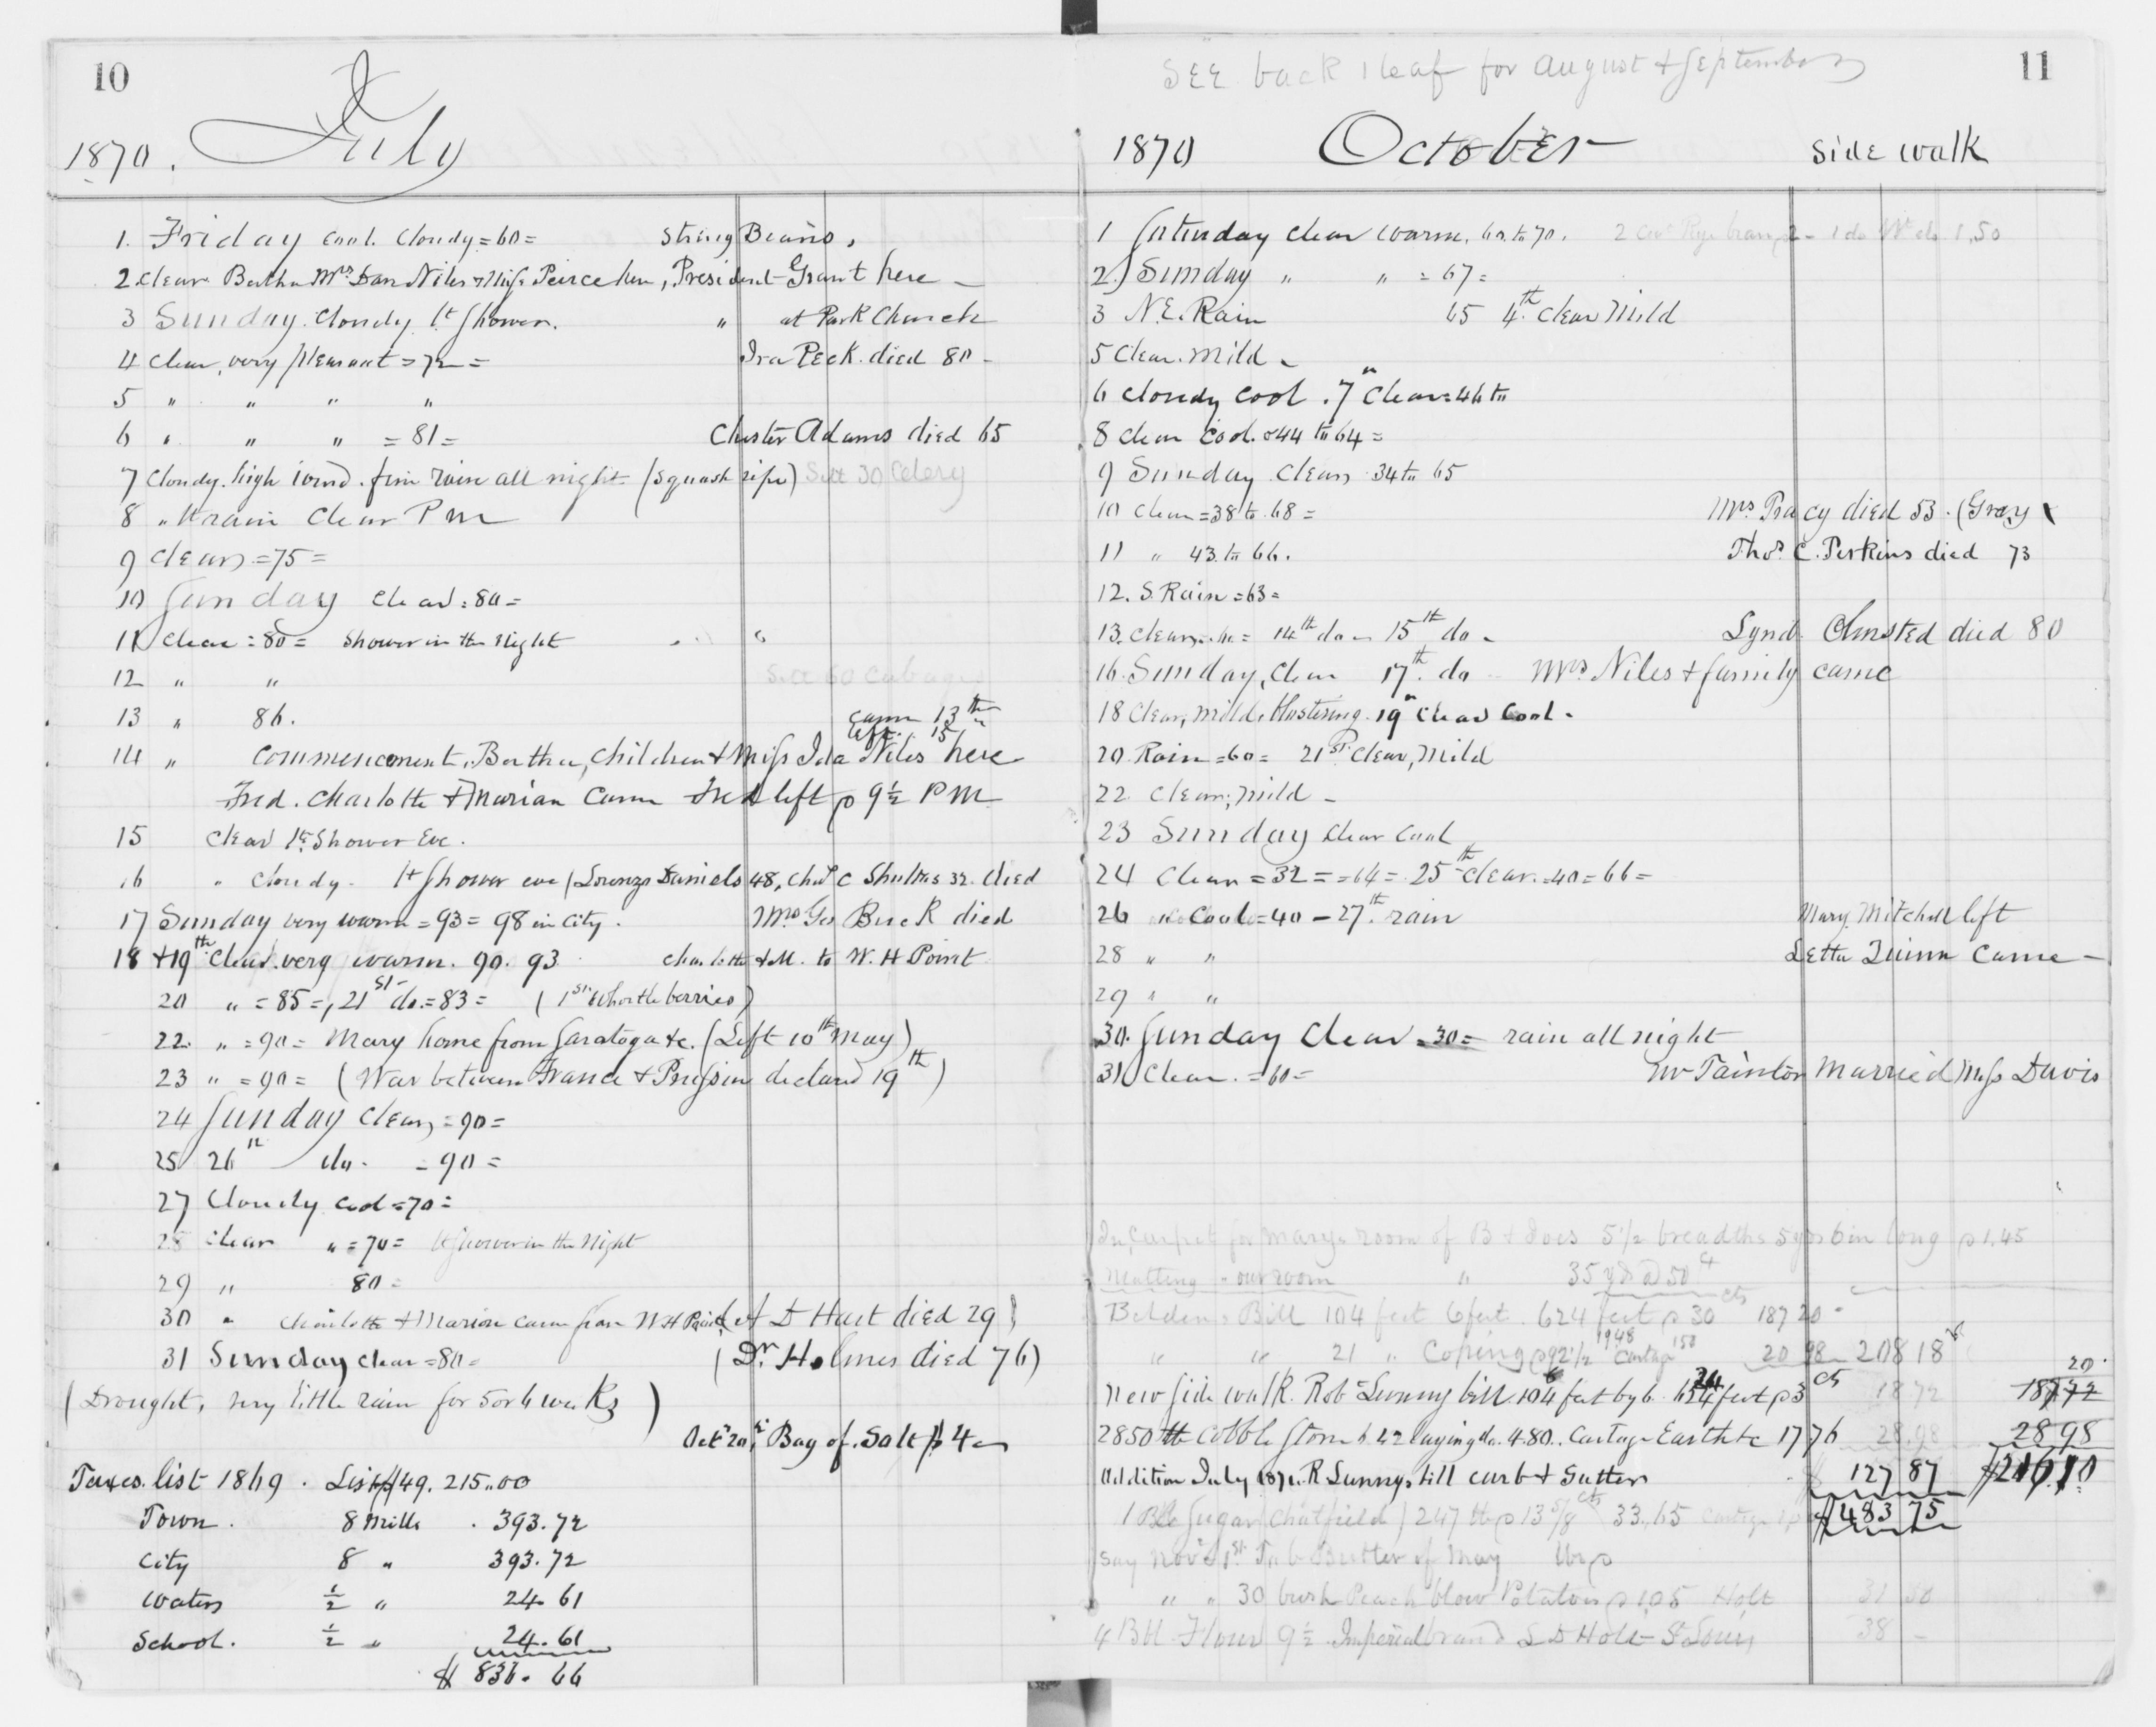 10
1870. July
1. Friday cool. Cloudy =60= String Beans,
2 clear Bertha Mrs Dan Niles & Miss Peirce here, President Grant here -
3 Sunday. Cloudy lt Shower. " at Park Church
4 Clear, very pleasant =72= Ira Peck died 80 -
5 " " " "
6 " " " =81= Chester Adams died 65
7 Cloudy. high wind. fine rain all night (squash ripe) Sett 30 Celery
8 " lt rain Clear P m
9 Clear =75=
10 Sunday Clear =80=
11 Clear =80= Shower in the Night
12 " " Sett 60 Cabages
13 " 86. came 13th
left 15"
14 " Commencement, Bertha, Children & Miss Ida Niles here
Fred. Charlotte & Marian Came Fred left p 9½ P M
15 Clear lt Shower Eve.
16 " Cloudy. lt Shower eve (Lorenzo Daniels 48, Chas C Shultas 32. died
17 Sunday very warm =93= 98 in City. Mrs Geo Buck died
18 & 19th Clear. very warm. 90. 93 Charlotte & M. to W. H Point
20 " =85=, 21st do. =83= (1st Whortleberries)
22. " =90= Mary home from Saratoga &c. (Left 10th May)
23 " =90= (War between France & Prussia declared 19th)
24 Sunday Clear =90=
25 26th do. =90=
27 Cloudy cool =70=
28 Clear " =70= lt shower in the Night
29 " 80=
30 " Charlotte & Marian came from W H Point (A D Hart died 29)
31 Sunday Clear =80= (Dr. Holmes died 76)
(Drought, very little rain for 5 or 6 weeks)
Octr 20th Bag of Salt $4-
Taxes. list 1869. List $49.215..00
Town. 8 Mills. 393.72
City 8 " 393.72
Waters ½ " 24.61
School. ½ " 24.61
$ 836.66
SEE back 1 leaf for August & September
11
1870 October Side walk
1 Saturday clear warm. 60. to 70. 2 Cwt Rye bran 2- 1 do Wt do 1.50
2 Sunday " " =67=
3 N.E. Rain 65 4th. Clear Mild
5 Clear. Mild -
6 Cloudy Cool. 7" Clear =46 to
8 Clear Cool. =44 to 64=
9 Sunday Clear 34 to 65
10 Clear =38 to 68= Mrs Tracy died 53. (Gray)
11 " 43 to 66. Thos C. Perkins died 73
12. S. Rain =63=
13. Clear 14th do - 15th do - Lynd. Olmsted died 80
16. Sunday, Clear 17th. do Mrs Niles & family came
18 Clear, Mild, blustering. 19" Clear Cool.
20 Rain =60= 21st Clear, Mild
22 Clear, mild -
23 Sunday Clear Cool
24 Clear =32= =64= 25th clear. =40=66=
26 " Cool =40 - 27th. rain Mary. Mitchell left
28 " " Letta Quinn Came -
29 " "
30. Sunday Clear =30= rain all night
31 Clear. =60= Mr Tainter Married Miss Davis
In Carpet for Marys room of B & Ives 5½ breadths 5 yds 6 in long p 1.45
Matting - our room " 35 yds @ 50 ct
Beldens Bill 104 feet 6 feet. 624 feet p 30 cts 187 20
" " 21 " Coping p 92½ 1948 Cartage 150 20 98 - 208 18
New Side walk. Robt Lunny bill 104 feet by 6. 624 feet p 3 cts 18 72 1872 20
2850 lb Cobble Stone 6 42 laying do. 4.80.. Cartage Earth &c 17 76 28.98 28 98
Addition July 1871. R Lunnys bill curb & Gutter $ 127 87 $216 10
1 Bbl Sugar (Chatfield) 247 lb p 13 5/8 cts 33.65 Cartage $483 75
say Novr 1st Tub Butter of May lb p
" " 30 bush Peach blow Potatoes p 1.05 Holt 31 50
4 Bbl Flour 9½ Imperial brand S D Holt St Louis 38 -